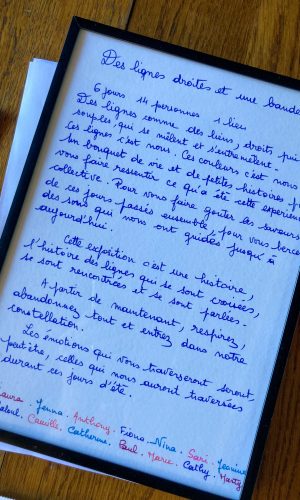 Des lignes droites et une bande
6 jours 14 personnes 1 lieu
Des lignes comme des liens, droits puis
souples, qui se mêlent et s'entremêlent.
Ces lignes c'est nous. Ces couleurs c'est nous
Un bouquet de vie et de petites histoires
vous faire ressentir ce qu'a été cette expérience
collective. Pour vous faire goûter les saveurs
de ces jours passés ensemble, pour vous bercer
des sons qui nous ont guidés jusqu'à
aujourd'hui.
Cette exposition c'est une histoire,
l'histoire des lignes qui se sont croisées,
se sont rencontrées et se sont parlées.
A partir de maintenant, respirez,
abandonnez tout et entrez dans notre
constellation.
Les émotions qui vous traverseront seront,
peut être, celles qui nous auront traversées
durant ces jours d'été.
Laura. Jenna. Anthony. Fiona. Nina. Sari. Jeanine
Camille. Catherine. Paul. Marie. Cathy. Marty